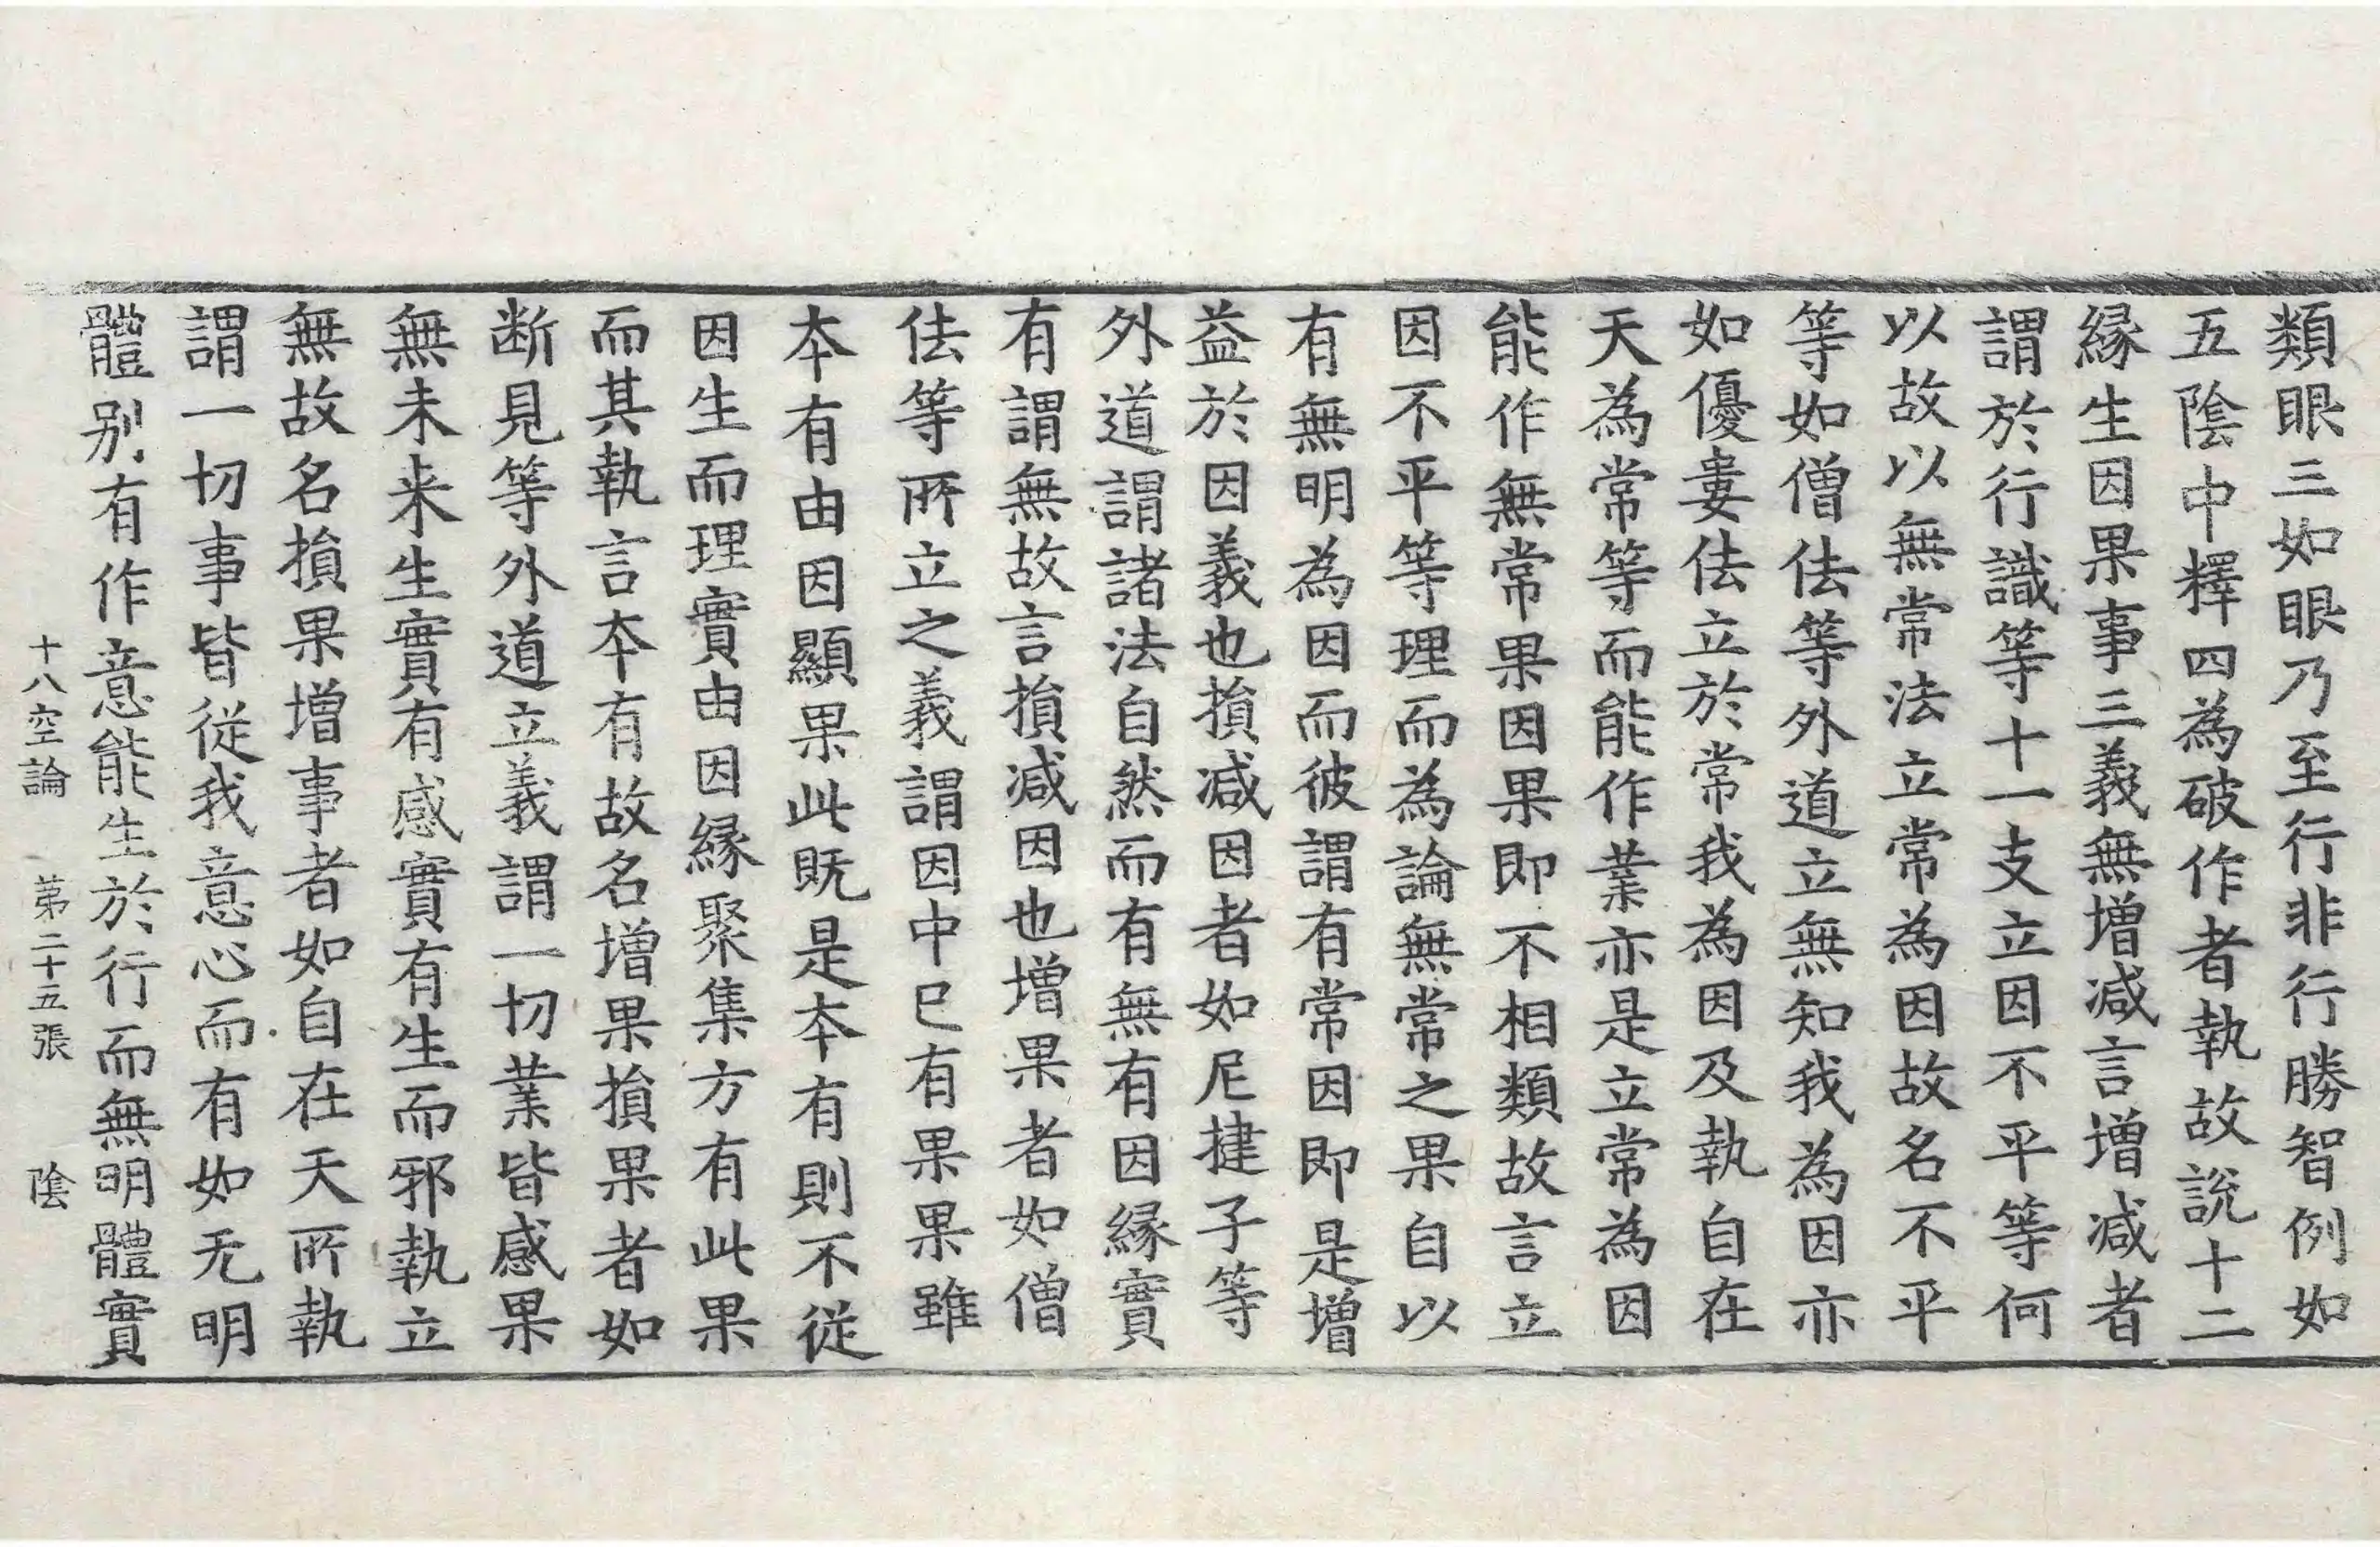 類眼三如眼乃至行非行勝智例如
五陰中釋四為破作者執故說十二
縁生因果事三義無增減言增減者
謂於行識等十一支立因不平等何
以故以無常法立常為因故名不平
等如僧佉等外道立無知我為因亦
如優婁佉立於常我為因及執自在
天為常等而能作業亦是立常為因
能作無常果因果即不相類故言立
因不平等理而為論無常之果自以
有無明為因而彼謂有常因即是增
益於因義也損减因者如尼揵子等
外道謂諸法自然而有無有因縁實
有謂無故言損减因也增果者如僧
佉等所立之義謂因中巳有果果雖
本有由因顯果此既是本有則不從
因生而理實由因縁聚集方有此果
而其執言本有故名增果損果者如
断見等外道立義謂一切業皆感果
無未来生實有感實有生而邪執立
無故名損果增事者如自在天所執
謂一切事皆從我意心而有如无明
體别有作意能生於行而無明體實
十八空論 苐二十五張 陰